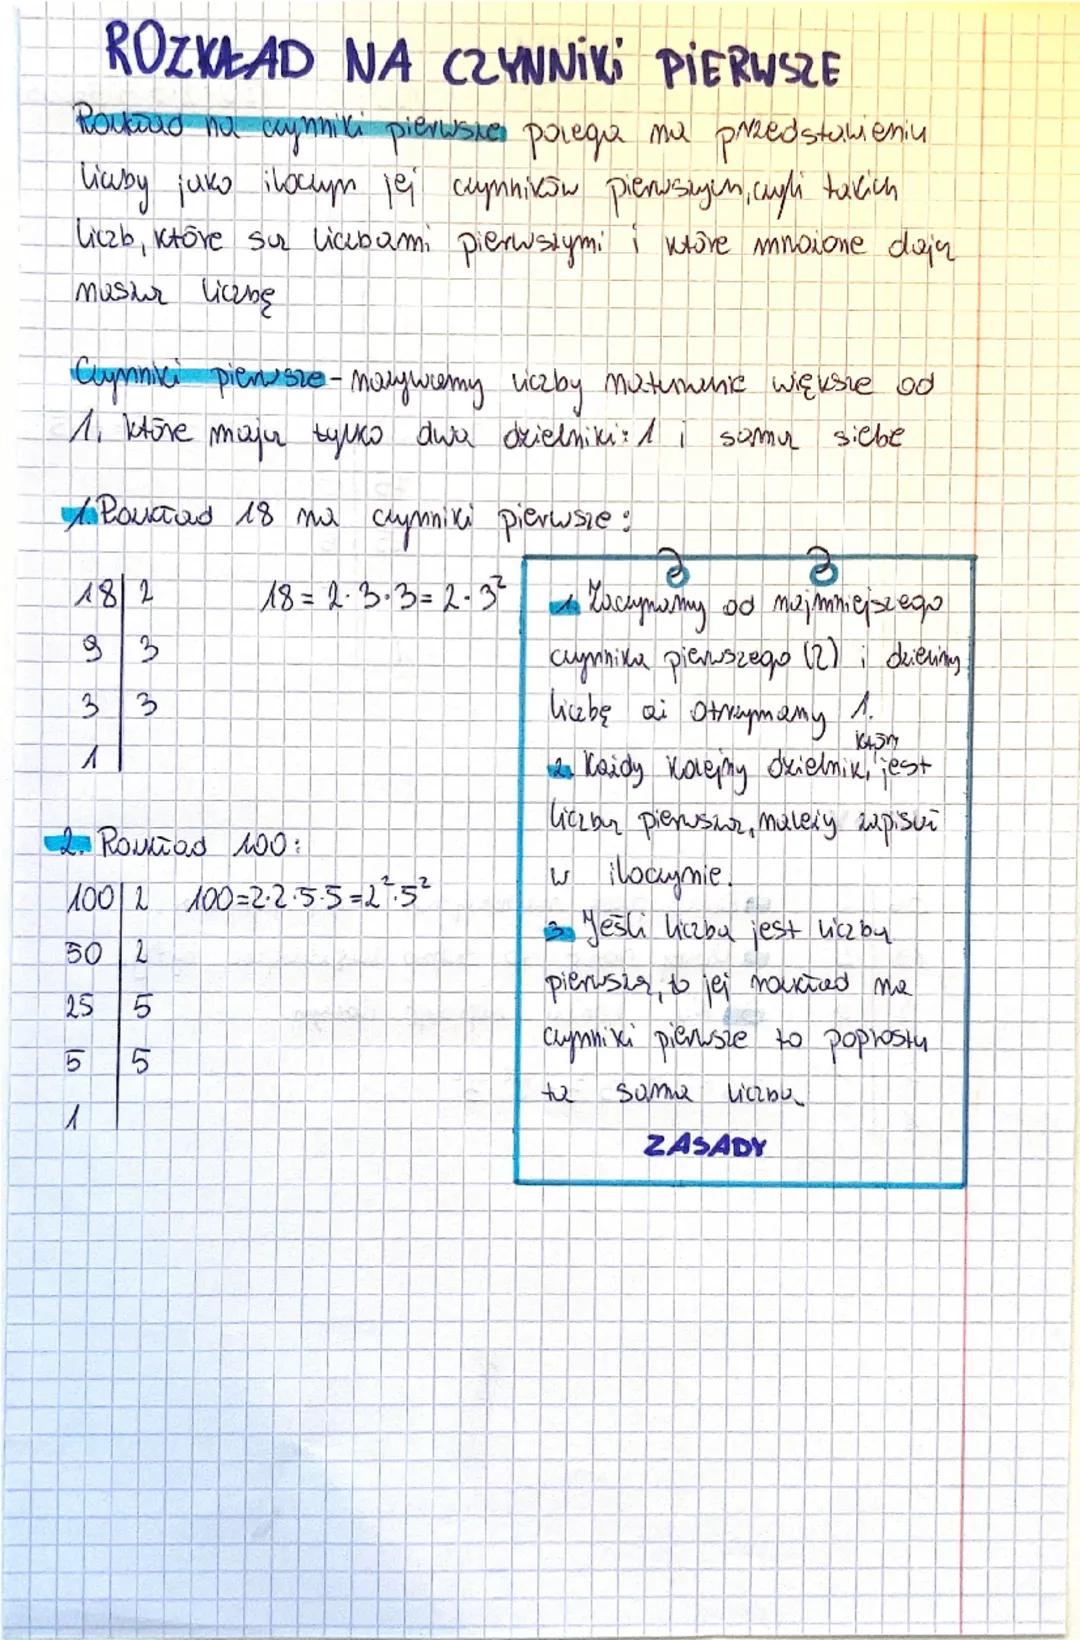 ROZKŁAD NA CZYNNIKI PIERWSZE
Rozkład na czynniki pierwsze polega na przedstawieniu
liczby jako iloczyn jej czynników pierwszych, czyli takich
liczb, które są liczbami pierwszymi i które mnożone dają
naszą liczbę
Czynniki pierwsze - nazywamy liczby naturalne większe od
1, które mają tylko dwa dzielniki: 1 i samą siebie
1. Rozkład 18 na czynniki pierwsze:
18 | 2 18 = 2·3·3 = 2·3²
9 | 3
3 | 3
1 |
2. Rozkład 100:
100 | 2 100=2·2·5·5=2²·5²
50 | 2
25 | 5
5 | 5
1 |
1. Zaczynamy od najmniejszego
czynnika pierwszego (2) i dzielimy
liczbę aż otrzymamy 1.
2. Każdy kolejny dzielnik, który jest
liczbą pierwszą, należy zapisać
w iloczynie.
3. Jeśli liczba jest liczbą
pierwszą, to jej rozkład na
czynniki pierwsze to poprostu
ta sama liczba
ZASADY